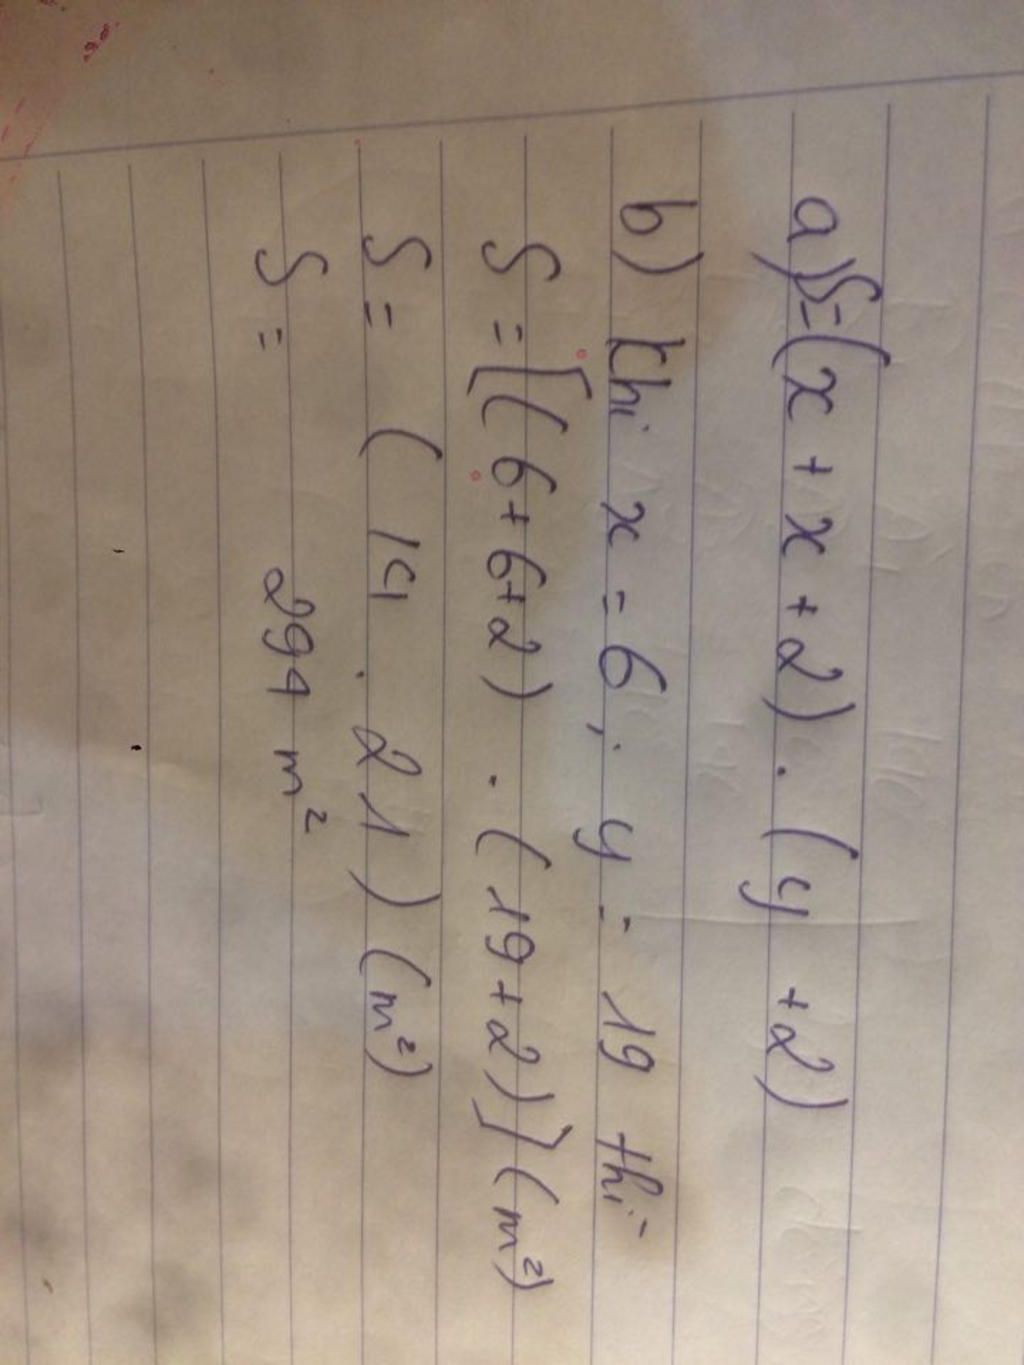 a) S=(x + x + 2) . (y + 2)
b) Khi x = 6, y = 19 thì
S = [(6+6+2) . (19+2)] (m²)
S = (14 . 21) (m²)
S = 294 m²